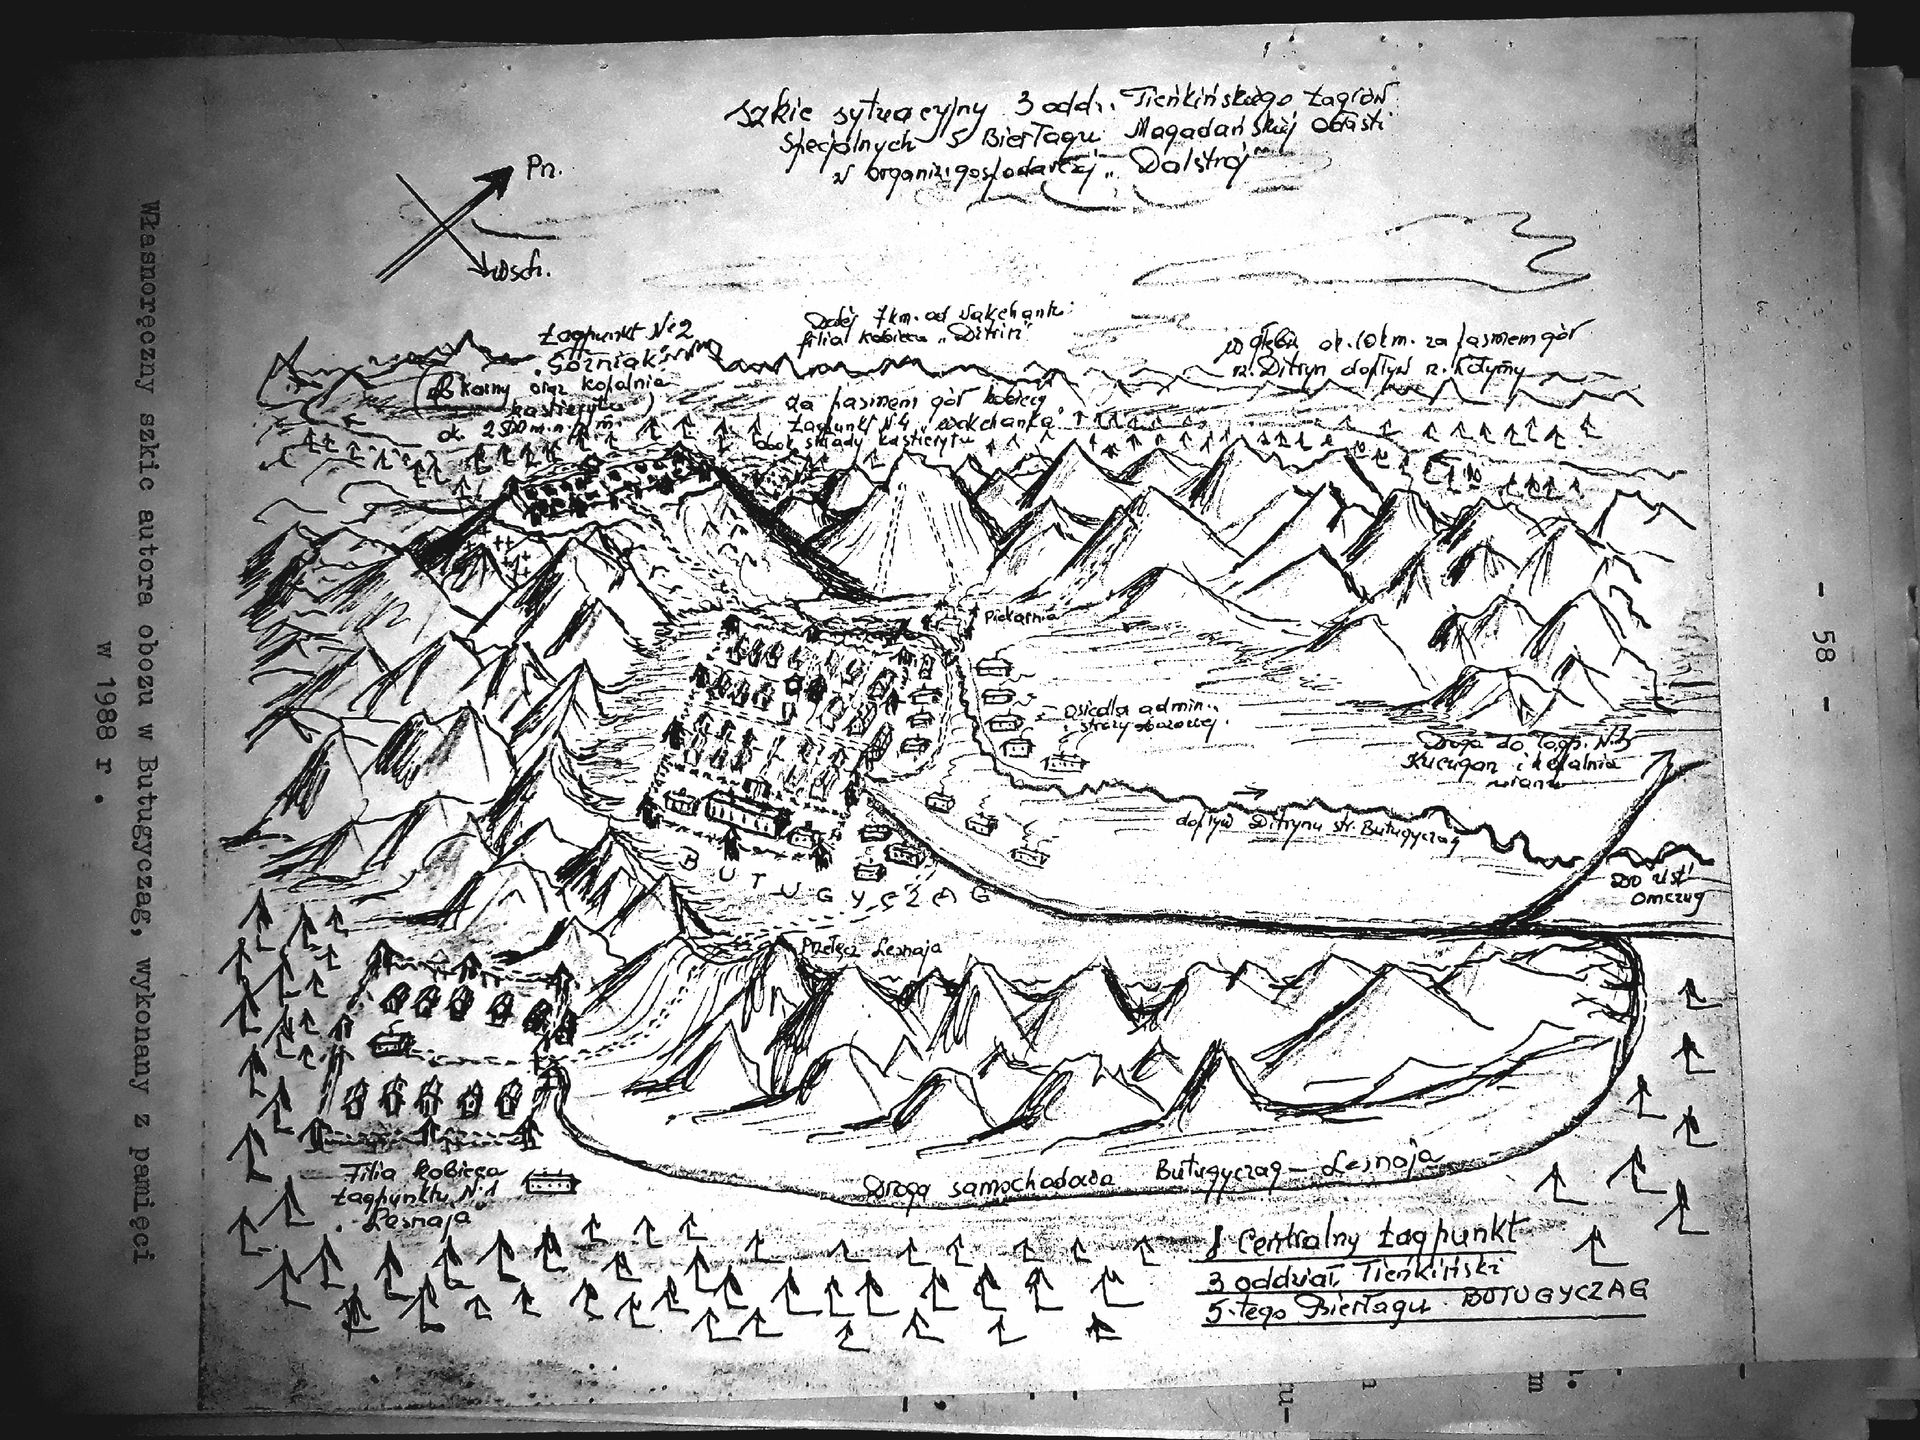 szkic sytuacyjny 3 oddz. Tieńkińskiego Łagrów
Specjalnych 5 Bierłagu Magadańskiej Obłasti
w organiz. gospodarczej „Dalstroj"
Pn.
wsch.
Łagpunkt Nr 2
„Górniak"
karny oraz kopalnia
kasterytu)
ok. 2500 m.n.p.m.
Dalej 7 km. od Wakchanki
filia kobieca „Ditrin"
w głębi ok. 10 km. za pasmem gór
rz. Ditryn dopływ rz. Kołymy
za pasmem gór kobiecy
Łagpunkt N:4 „Wakchanka"
obok składy kasterytu
Piekarnia
Osiedla admin.
i straży obozowej.
Droga do łagp. N:3
Kucugan i kopalnia
uranu
dopływ Ditrynu str. Butugyczag
Do Ust'
Omczug
BUTUGYCZAG
Przełęcz Lesnaja
Filia kobieca
Łagpunktu N:1
„Lesnaja"
Droga samochodowa Butugyczag – Lesnaja
Centralny Łagpunkt
3 oddział, Tieńkiński
5-tego Bierłagu BUTUGYCZAG
Własnoręczny szkic autora obozu w Butugyczag, wykonany z pamięci
w 1988 r.
- 58 -